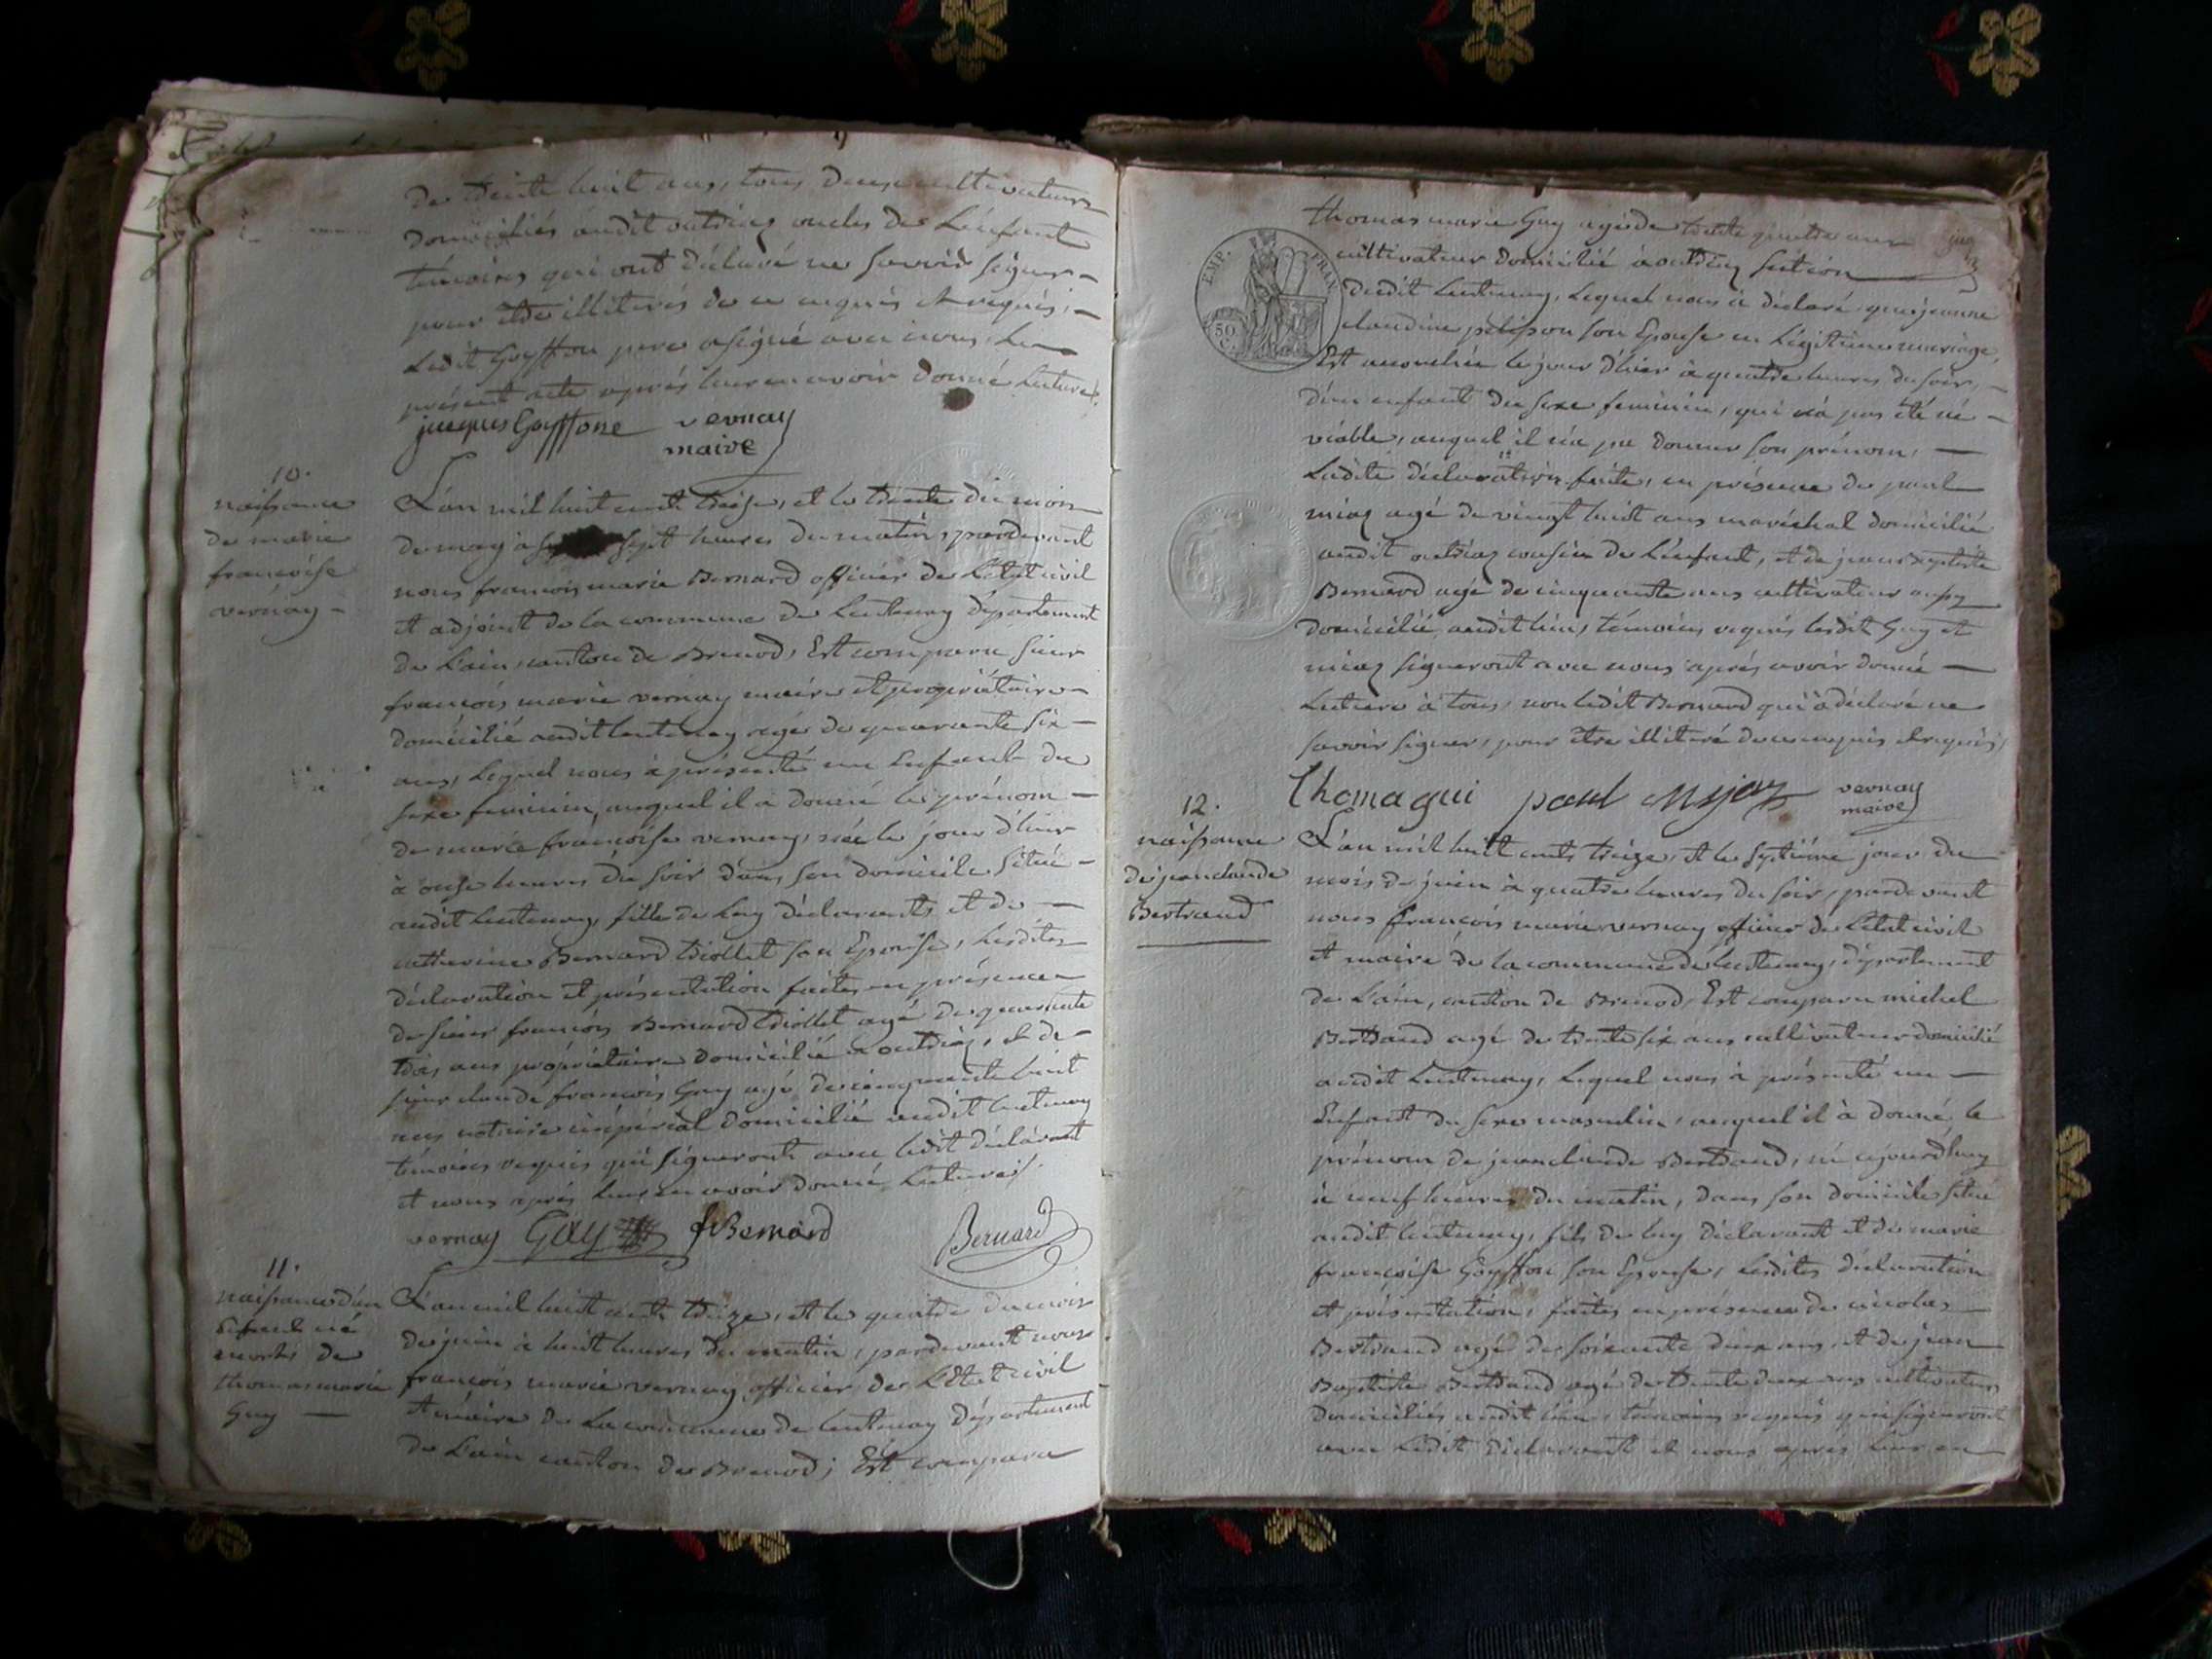 de trente huit ans, tous deux cultivateurs
domiciliés audit outriaz oncles de L'enfant
témoins qui ont déclaré ne savoir signer
pour etre illiterés de ce enquis et requis,
Ledit Goyffon pere a signé avec nous le
présent acte après leur en avoir donné Lecture.
jacques Goyffone vernay
maire
10.
naissance
de marie
francoise
vernay
L'an mil huit cent treize, et le trente du mois
de may a sept heures du matin, pardevant
nous francois marie Bernard officier de L'état civil
et adjoint de la commune de Lentenay département
de L'ain, canton de Brenod, Est comparu sieur
francois marie vernay maire et propriétaire
domicilié audit lentenay agé de quarante six
ans, Lequel nous à présenté un Enfant du
sexe feminin, auquel il a donné les prénom
de marie françoise vernay, née le jour d'hier
à onze heures du soir dans son domicile situé
audit Lentenay, fille de Luy déclarant et de
catherine Bernard triollet son Epouse, Lesdites
déclaration et présentation faites en présence
de sieur françois Bernard triollet agé de quarante
trois ans propriétaire domicilié a outriaz, et de
sieur claude francois Guy agé de cinquante huit
ans notaire impérial domicilié audit lentenay
témoins requis qui signeront avec ledit déclarant
et nous après Leur en avoir donné Lecture
vernay Guy fBernard Bernard
11.
naissance d'un
Enfant né
mort de
thomas marie
Guy
L'an mil huit cent treize, et le quatre du mois
de juin à huit heures du matin, pardevant nous
françois marie vernay officier de L'Etat civil
et maire de La commune de lentenay Département
de L'ain canton de Brenod; Est comparu
thomas marie Guy agé de trente quatre ans
cultivateur domicilié à outriaz section
dudit Lentenay, Lequel nous à déclaré que jeanne
claudine pelisson son Epouse en Légitime mariage,
Est accouchée le jour d'hier à quatre heures du soir,
d'un enfant du sexe feminin, qui n'a pas été né
viable, auquel il n'a pu donner son prénom,
Ladite déclaration faite, en présence de paul
miaz agé de vingt huit ans maréchal domicilié
audit outriaz cousin de L'enfant, et de jean baptiste
Bernard agé de cinquante ans cultivateur aussy
domicilié audit lieu, témoins requis lesdit Guy et
miaz signeront avec nous après avoir donné
Lecture à tous, non ledit Bernard qui a déclaré ne
savoir signer, pour etre illiteré de ce enquis et requis,
EMP. FRAN.
50
C.
Thoma gui paul Mijaz vernay
maire
12.
naissance
de jean claude
Bertrand
L'an mil huit cents treize, et le septième jour du
mois de juin à quatre heures du soir, pardevant
nous françois marie vernay officier de L'état civil
et maire de la commune de lentenay, département
de L'ain, canton de Brenod, Est comparu michel
Bertrand agé de trente six ans cultivateur domicilié
audit Lentenay, Lequel nous à présenté un
Enfant du sexe masculin, auquel il à donné le
prénom de jean claude Bertrand, né aujourd'huy
à neuf heures du matin, dans son domicile situé
audit lentenay, fils de luy déclarant et de marie
françoise Goyffon son Epouse, Lesdites déclaration
et présentation, faites en présence de nicolas
Bertrand agé de soixante deux ans, et de jean
Baptiste Bertrand agé de trente deux ans cultivateurs
domiciliés audit lieu, témoins requis qui signeront
avec Ledit déclarant et nous après leur en